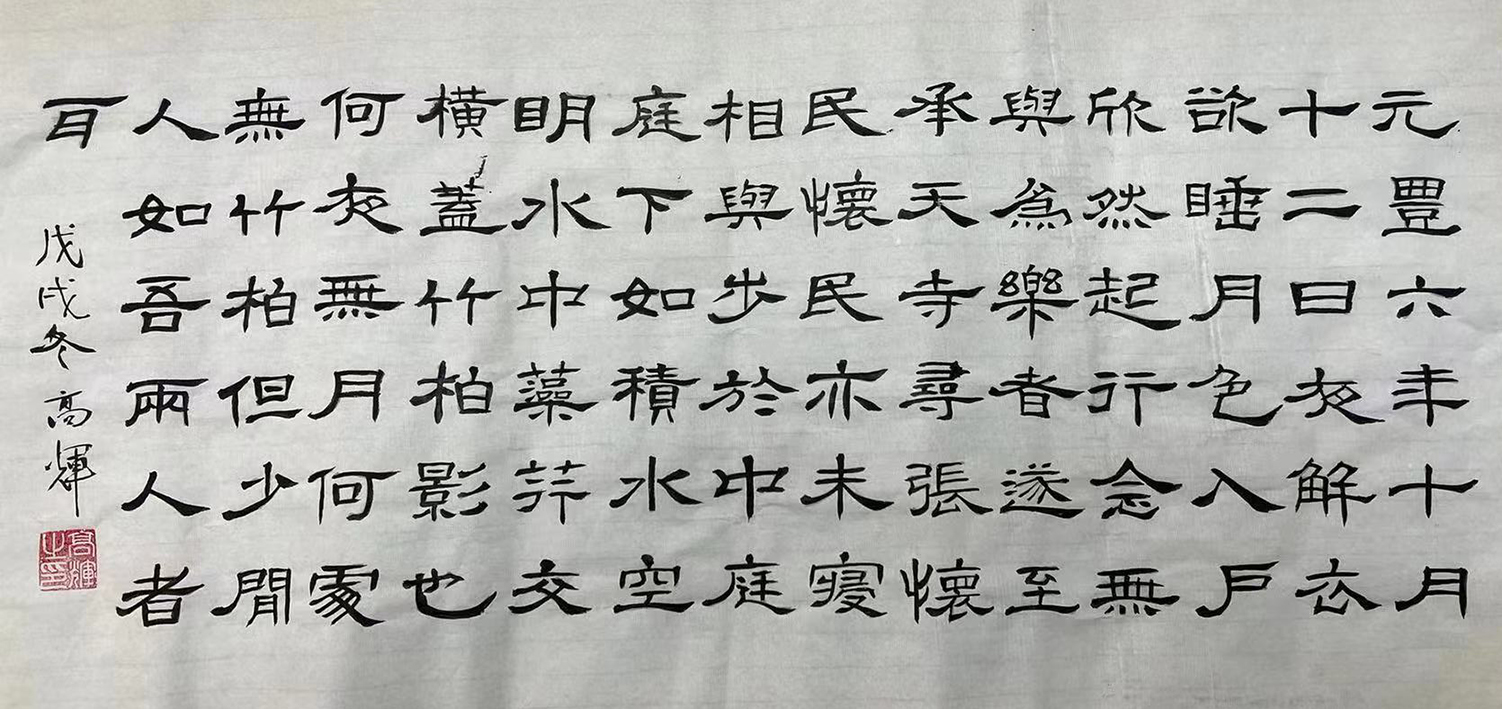 元豐六年十月
十二日夜解衣
欲睡月色入戶
欣然起行念無
與為樂者遂至
承天寺尋張懷
民懷民亦未寢
相與步於中庭
庭下如積水空
明水中藻荇交
橫蓋竹柏影也
何夜無月何處
無竹柏但少閒
人如吾兩人者
耳
戊戌冬高輝
高輝之印